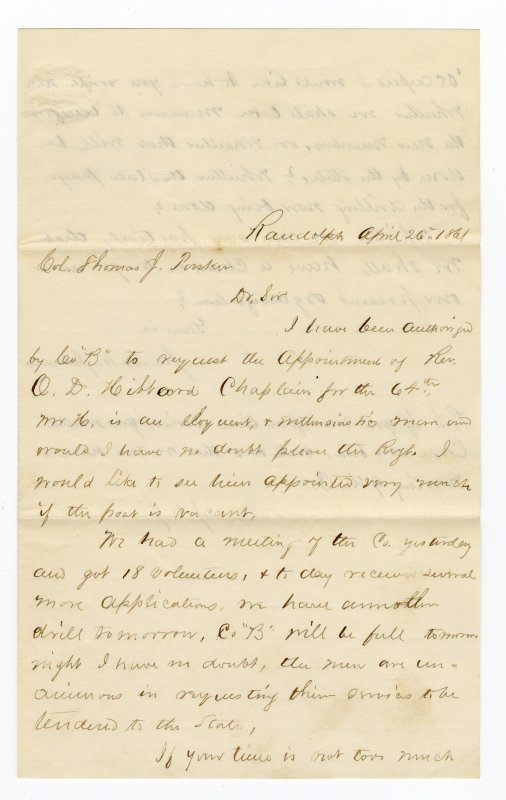 Randolph April 26th 1861
Col. Thomas J.
Dr. Sir
I have been authorized
by Co "B" to request the appointment of Rev.
O. D. Hibbard Chaplain for the 64th,
Mr H. is an Eloquent, & enthusiastic man and
would I have no doubt please the Regt. I
would like to see him appointed very much
if the post is vacant,
We had a meeting of the Co. yesterday
and got 18 volunteers, & to day receive several
more applications, we have annother
drill tomorrow, Co "B" will be full tomorrow
night I have no doubt, the men are un-
animous in requesting their services to be
tendered to the State,
If your time is not too much